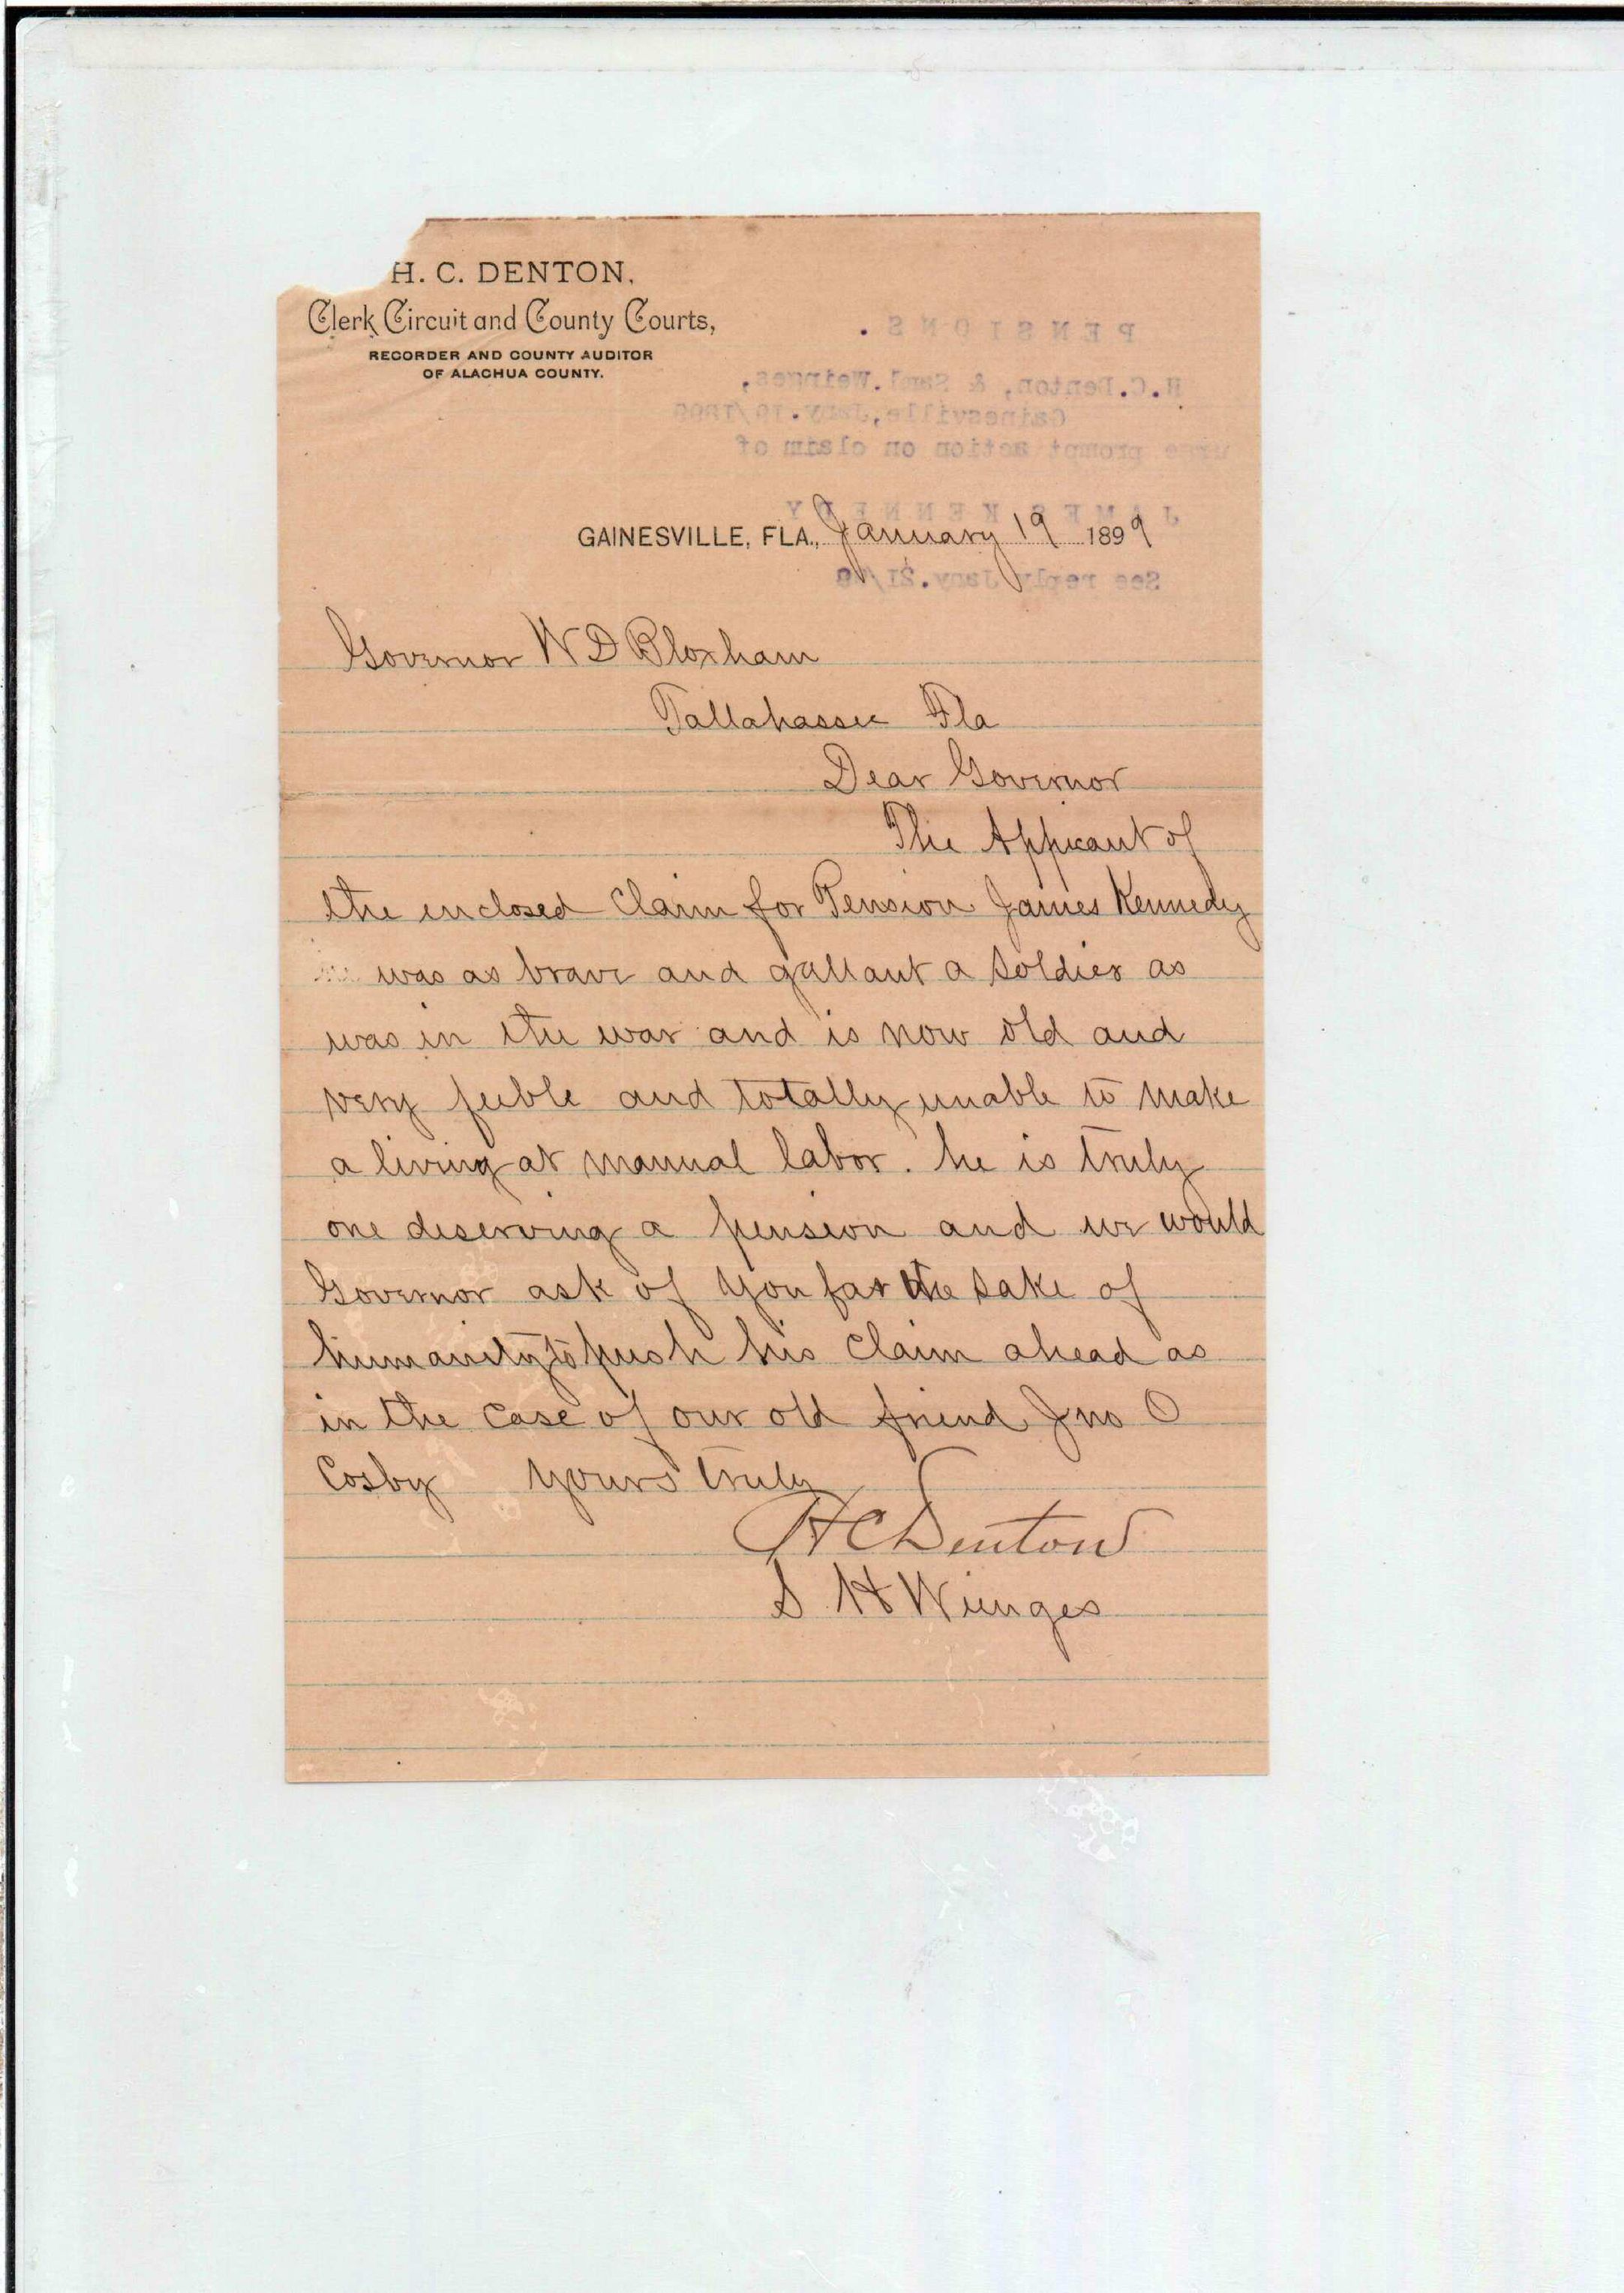 H. C. DENTON,
Clerk Circuit and County Courts,
RECORDER AND COUNTY AUDITOR
OF ALACHUA COUNTY.
PENSIONS.
H.C.Denton, & Saml.Weinges,
Gainesville, Jany.19/1899
urge prompt action on claim of
JAMES KENNEDY
GAINESVILLE, FLA., January 19 1899
See reply Jany.21/99
Governor W D Bloxham
Tallahassee Fla
Dear Governor
The Appicant of
the enclosed Claim for Pension James Kennedy
was as brave and gallant a soldier as
was in the war and is now old and
very feeble and totally unable to make
a living at manual labor. he is truly
one deserving a pension and we would
Governor ask of you for the sake of
humanity to push his claim ahead as
in the case of our old friend Jno O
Cosby yours truly
H C Denton
S H Wienges